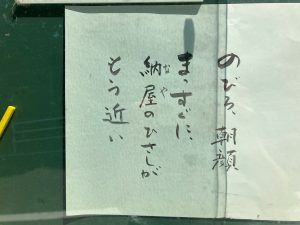 のびろ、朝顔
まっすぐに、
納屋のひさしが
なや
もう近い